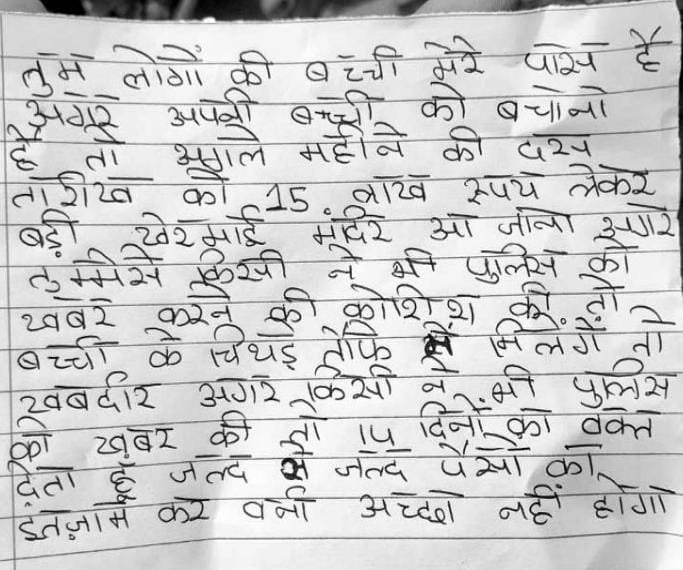 तुम लोगों की बच्ची मेरे पास है
अगर अपनी बच्ची को बचाना
है तो अगले महीने की दस
तारीख को 15 लाख रूपय लेकर
बड़ी खेरमाई मंदिर आ जाना अगर
तुममेसे किसी ने भी पुलिस को
खबर करने की कोशिश की तो
बच्ची के चिथड़े तोफे में मिलेगे तो
खबर्दार अगर किसी ने भी पुलिस
को खबर की तो 14 दिनों का वक्त
देता हूँ जल्द से जल्द पैसो का
इतज़ाम कर वर्ना अच्छा नहीं होगा